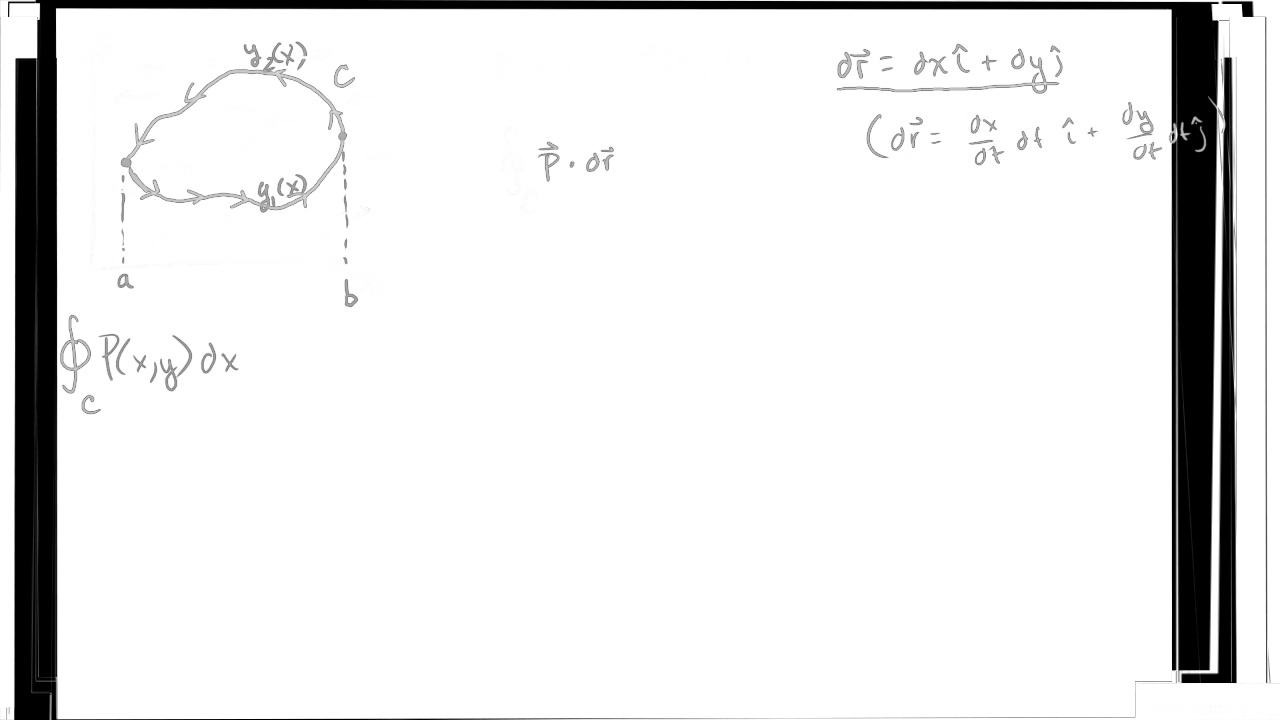 y₂(x)
C
y₁(x)
a
b
∮_C P(x,y) dx
P⃗ · dr⃗
dr⃗ = dx î + dy ĵ
(dr⃗ = dx/dt dt î + dy/dt dt ĵ)